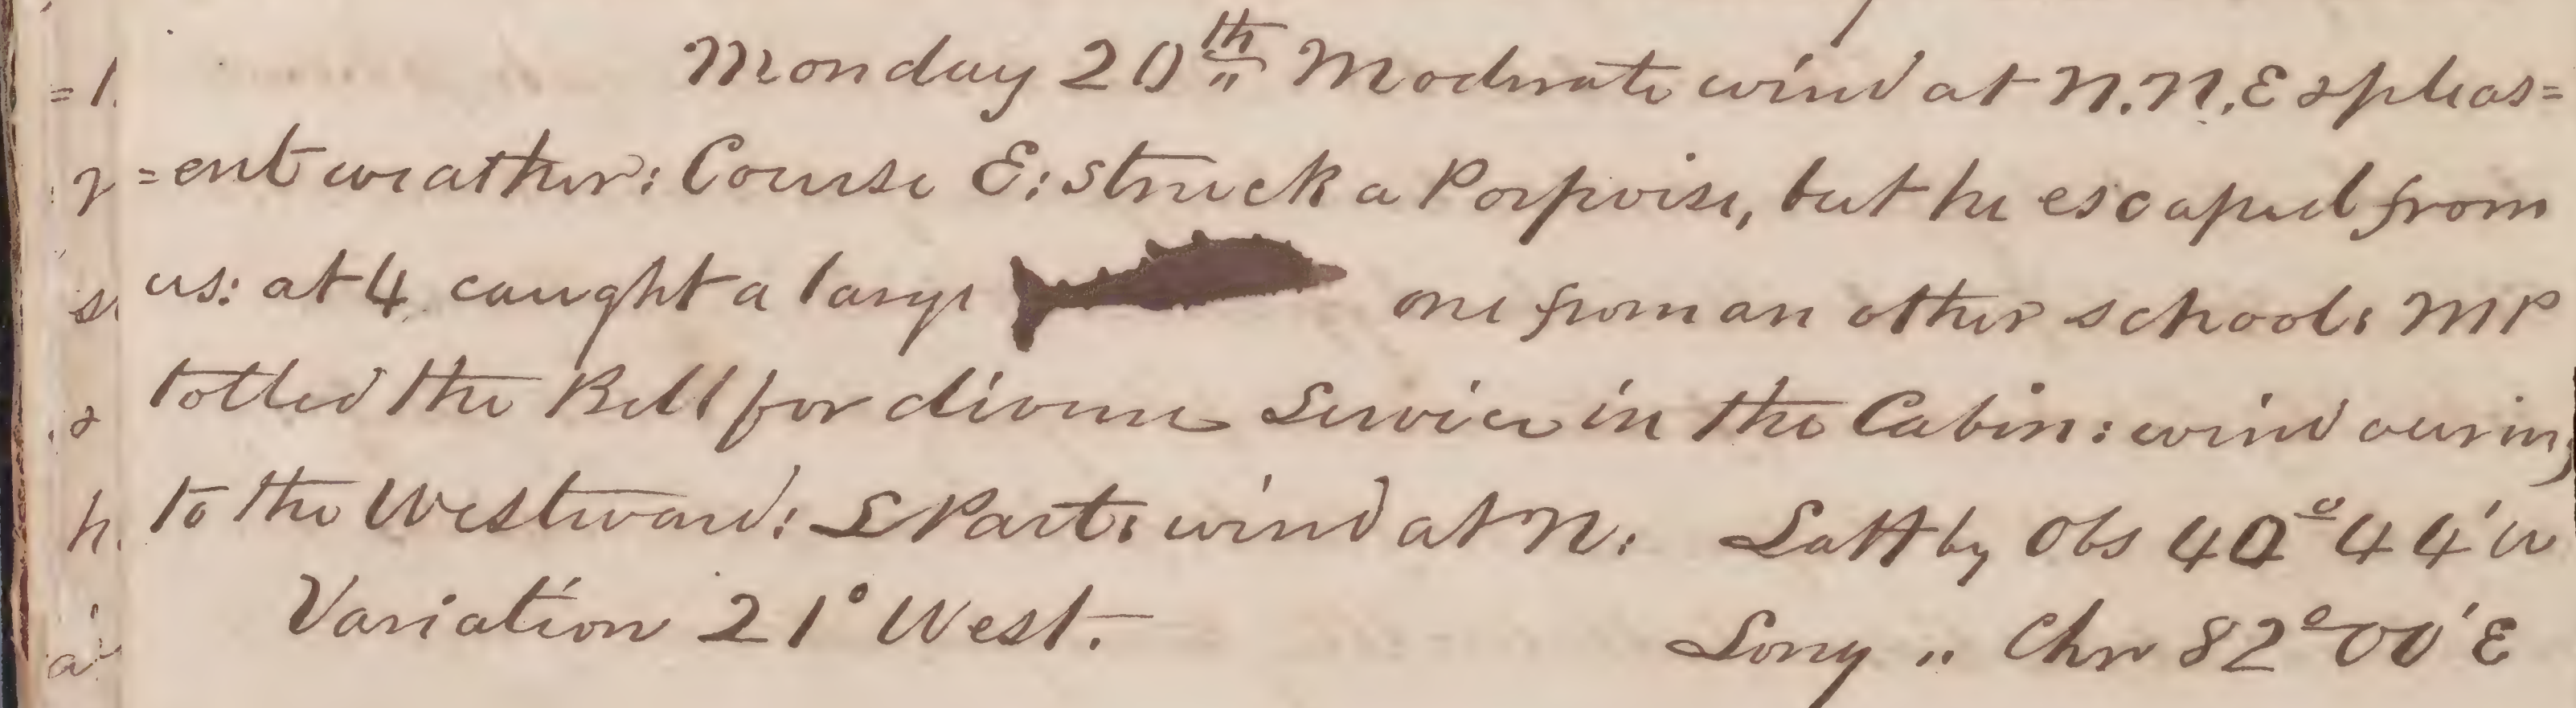 Monday 20th Moderate wind at N.N.E & pleas=
=ent weather: Course E: struck a Porpoise, but he escaped from
us: at 4 caught a large one from an other school: MP
tolled the Bell for divine Service in the Cabin: wind
to the Westward: L Part: wind at N: Latt by Obs 40° 44'
Variation 21° West. Long " Chr 82° 00' E